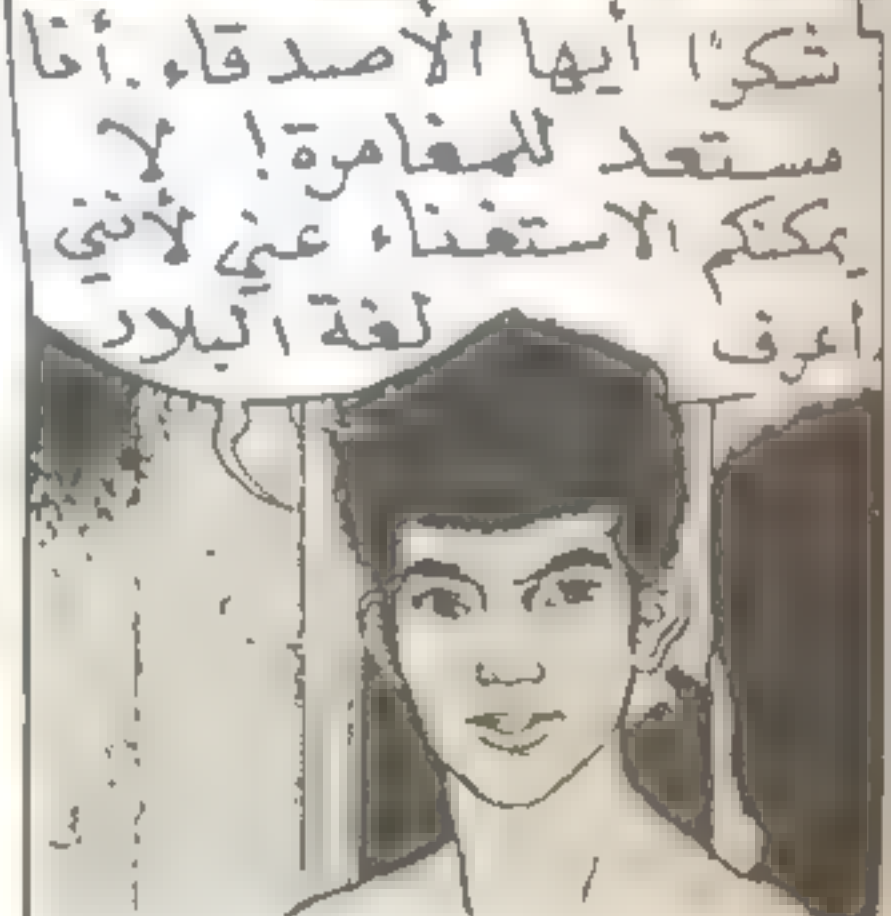 شكرًا أيها الأصدقاء. أنا
مستعد للمغامرة! لا
يمكنكم الاستغناء عني لأنني
أعرف لغة البلاد